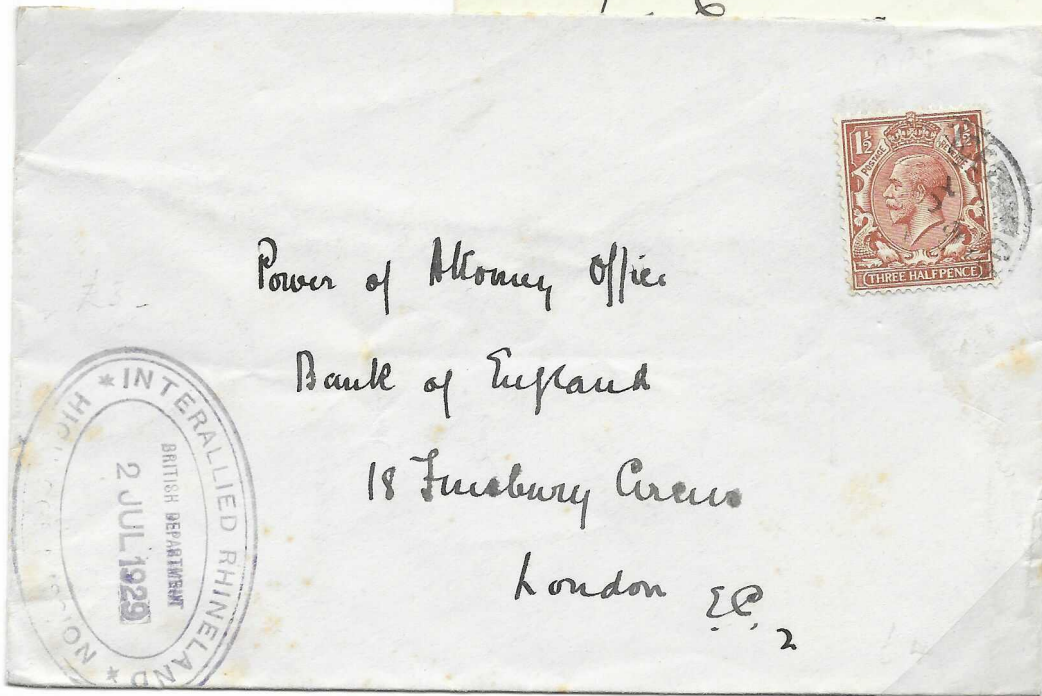 1½ 1½
POSTAGE REVENUE
THREE HALFPENCE
Power of Attorney Office
Bank of England
18 Finsbury Circus
London E.C.
2
★ INTERALLIED RHINELAND ★
BRITISH DEPARTMENT
2 JUL 1929